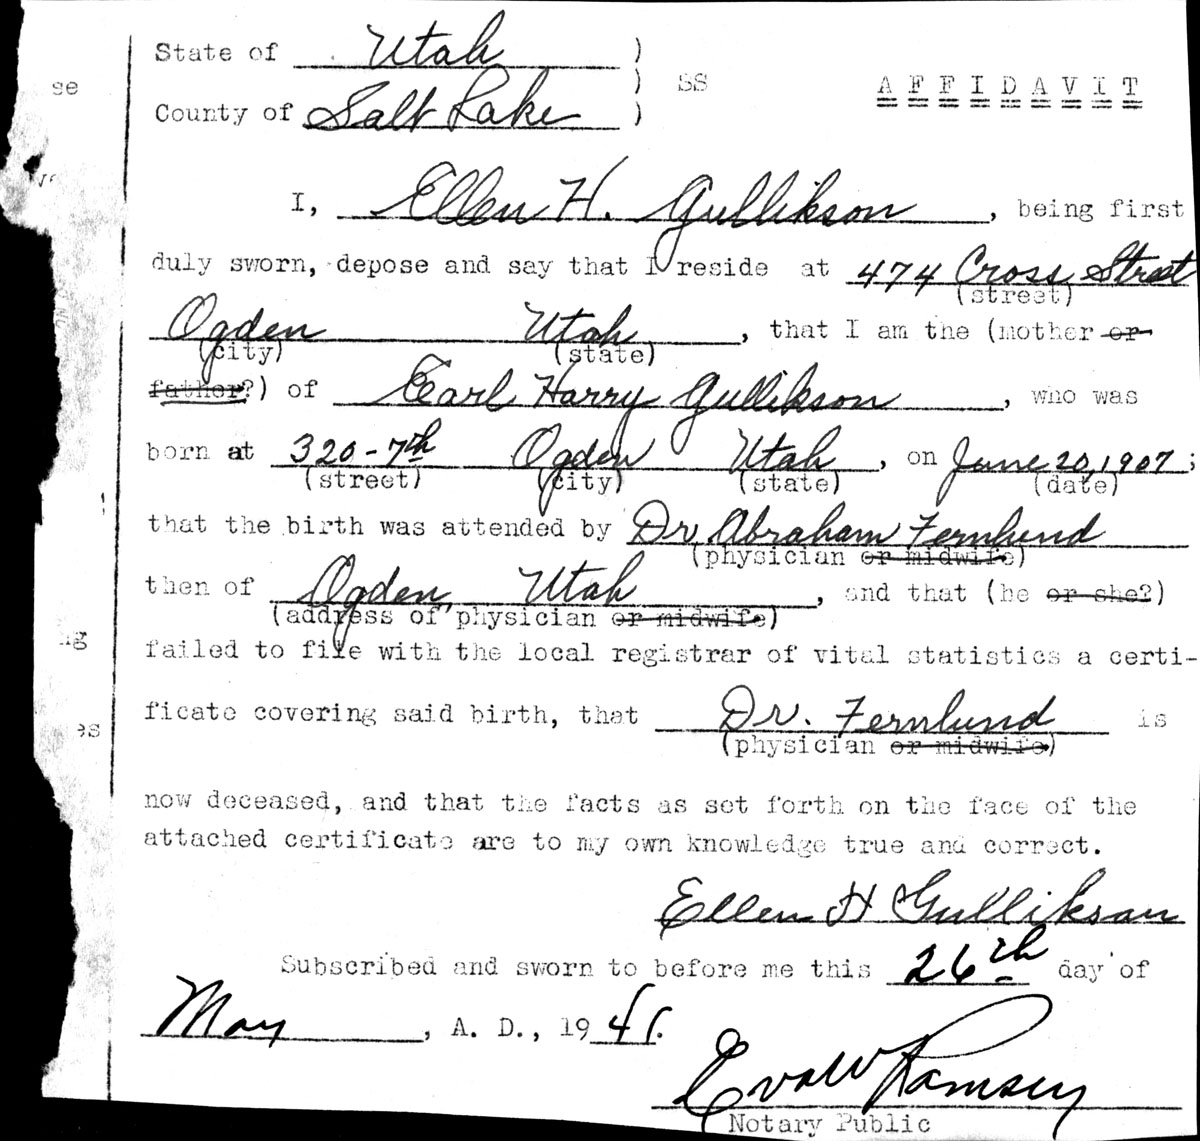 State of Utah )
se ) SS AFFIDAVIT
County of Salt Lake )
I, Ellen H. Gullikson, being first
duly sworn, depose and say that I reside at 474 Cross Street
(street)
Ogden Utah, that I am the (mother or
(city) (state)
father?) of Earl Harry Gullikson, who was
born at 320-7th Ogden Utah, on June 20, 1907;
(street) (city) (state) (date)
that the birth was attended by Dr. Abraham Fernlund
(physician or midwife)
then of Ogden, Utah, and that (he or she?)
(address of physician or midwife)
ng
failed to file with the local registrar of vital statistics a certi-
ficate covering said birth, that Dr. Fernlund is
es (physician or midwife)
now deceased, and that the facts as set forth on the face of the
attached certificate are to my own knowledge true and correct.
Ellen H Gullikson
Subscribed and sworn to before me this 26th day of
May, A. D., 1941.
Eva W Ramsey
Notary Public